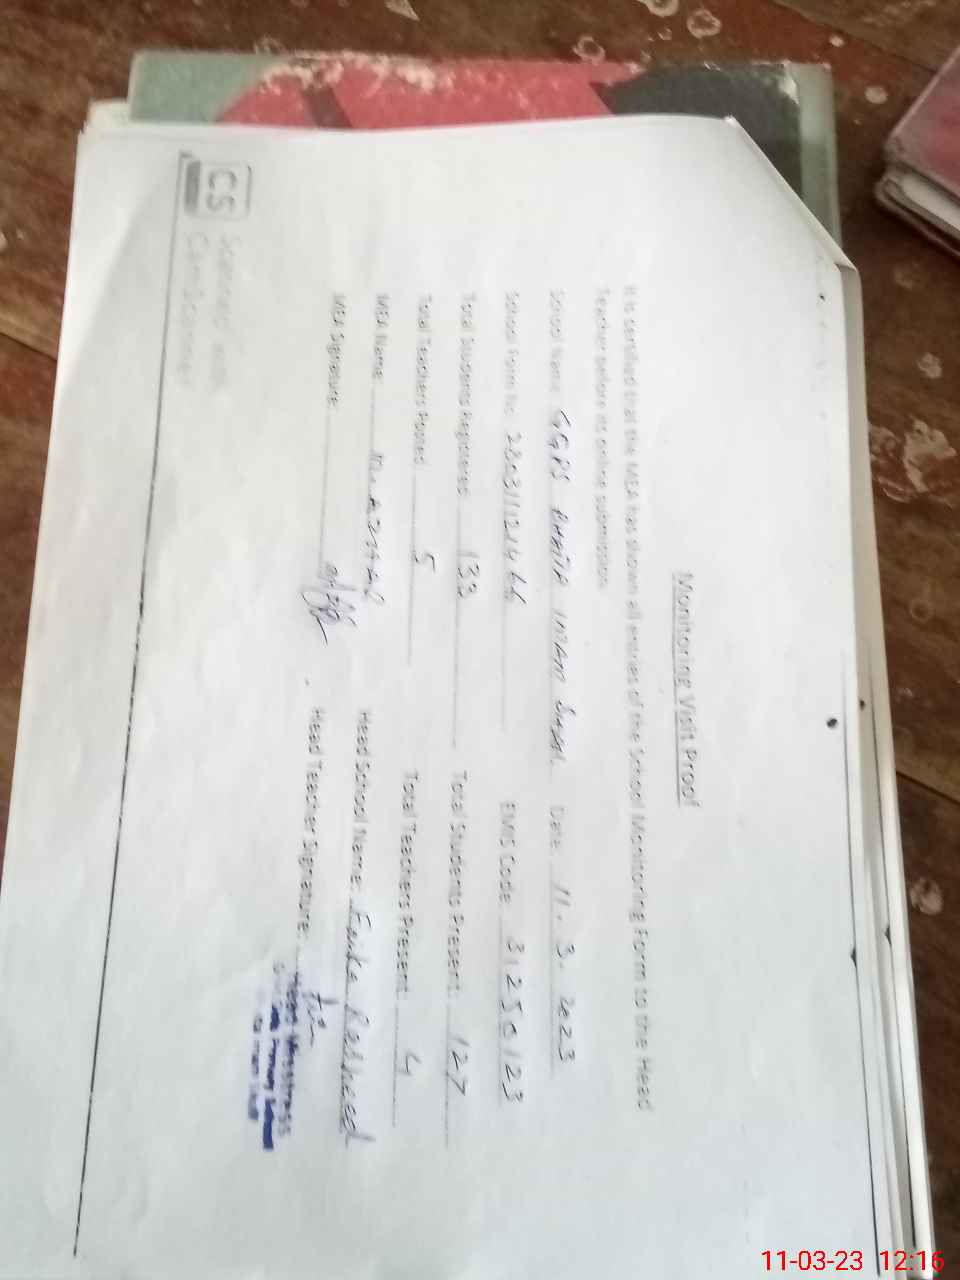 Monitoring Visit Proof
It is certified that the MEA has shown all entries of the School Monitoring Form to the Head
Teacher before its online submission.
School Name: GGPS Imam Shah. Date: 11.3.2023
School Form No: EMIS Code: 31250123
Total Students Registered: 133 Total Students Present: 127
Total Teachers Posted: 5 Total Teachers Present: 4
MEA Name: Head School Name: Rasheed
MEA Signature: Head Teacher Signature:
Head Mistress
Primary School
CS Scanned with
CamScanner
11-03-23 12:16